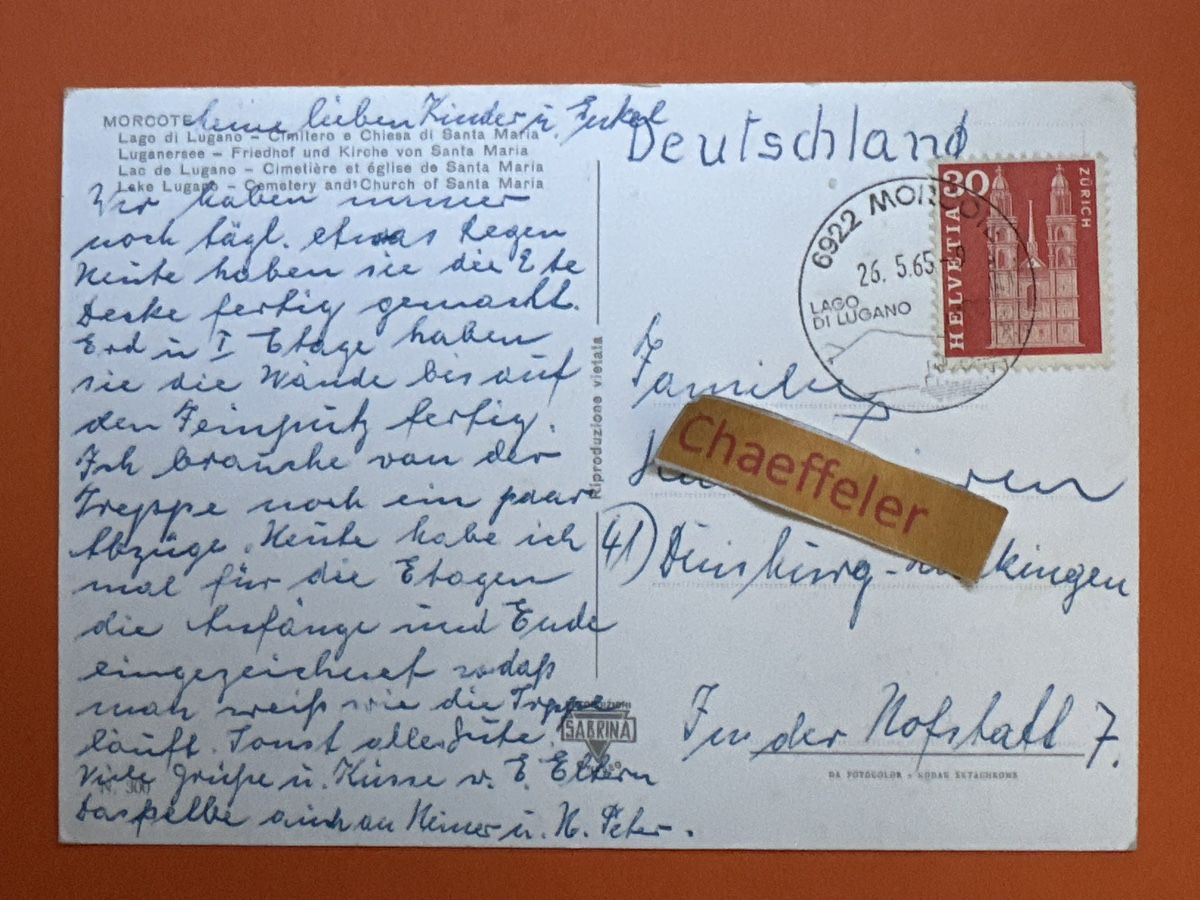 MORCOTE
Meine lieben Kinder u. Enkel
Lago di Lugano - Cimitero e Chiesa di Santa Maria
Luganersee - Friedhof und Kirche von Santa Maria
Lac de Lugano - Cimetière et église de Santa Maria
Lake Lugano - Cemetery and Church of Santa Maria
Wir haben immer
noch tägl. etwas Regen
Heute haben sie die Ete
Decke fertig gemacht.
Erd u I Etage haben
sie die Wände bis auf
den Feinputz fertig.
Ich brauche von der
Treppe noch ein paar
Abzüge. Heute habe ich
mal für die Etagen
die Anfänge und Ende
eingezeichnet sodaß
man weiß wie die Treppe
läuft. Sonst alles Gute.
Viele Grüße u. Küsse v. E Eltern
Dasselbe auch an Heiner u. H. Peter.
N. 300
Riproduzione vietata
SABRINA
Deutschland
30
HELVETIA
ZÜRICH
6922 MORCOTE
26. 5.65
LAGO
DI LUGANO
Familie
Chaeffeler
ren
41) Duisburg- kingen
In der Hofstatt 7.
DA FOTOCOLOR - KODAK EKTACHROME